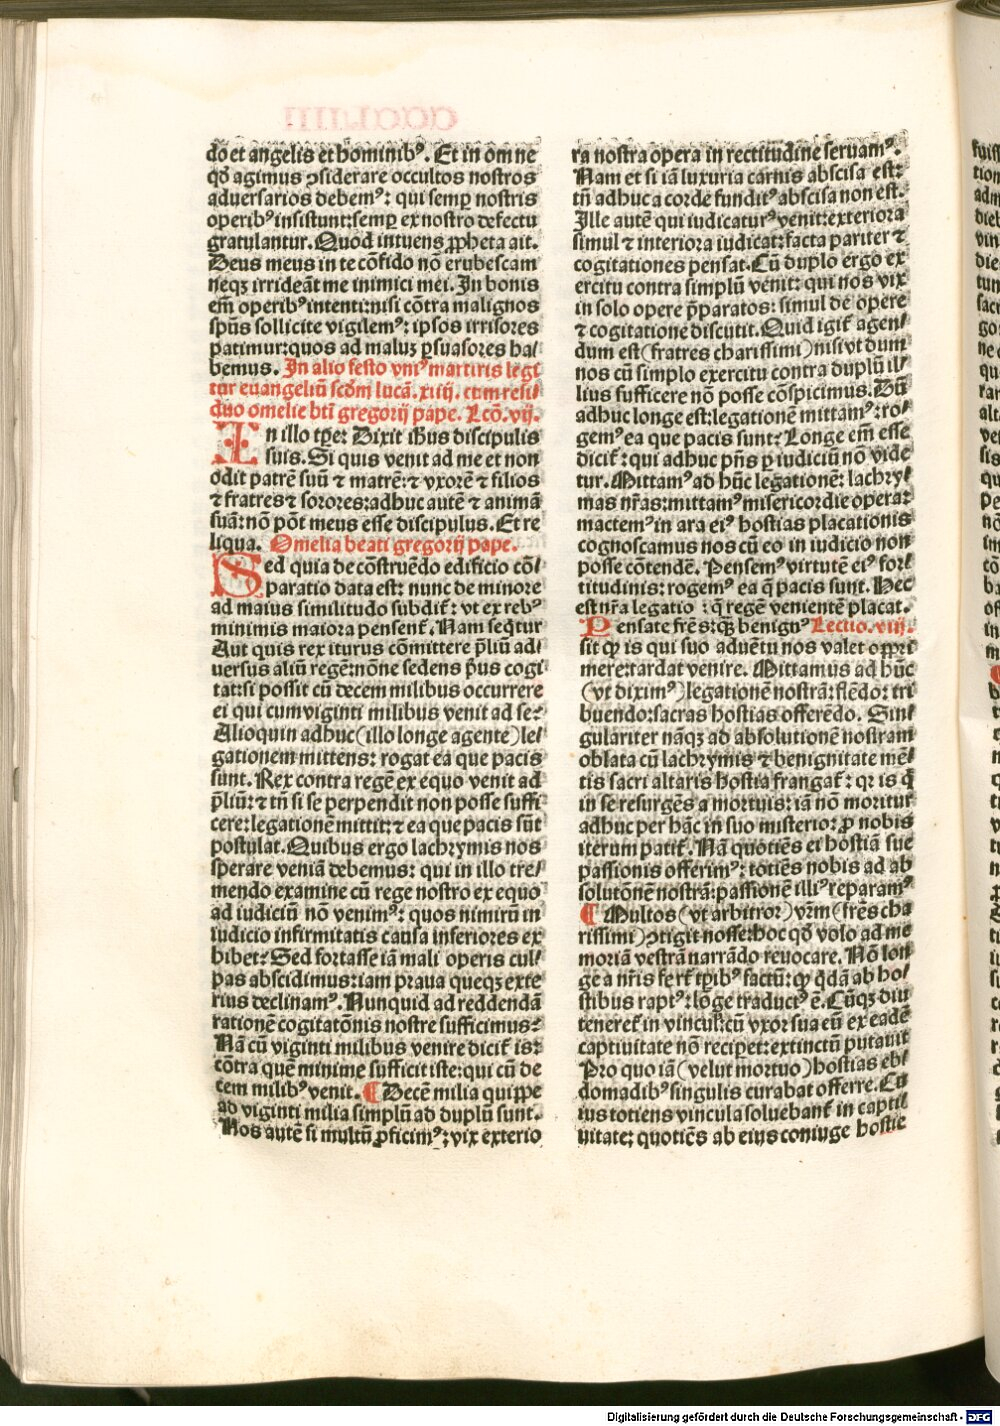 dõ et angelis et hominibꝰ. Et in om̃ne
qd̃ agimus ↄsiderare occultos nostros
aduersarios debemꝰ: qui semꝑ nostris
operibꝰ insistunt: semꝑ ex nostro defectu
gratulantur. Quod intuens ꝓpheta ait.
Deus meus in te cõfido nõ erubescam
neqꝫ irrideãt me inimici mei. In bonis
em̃ operibꝰ intenti: nisi cõtra malignos
spũs sollicite vigilemꝰ: ipsos irrisores
patimur: quos ad maluꝫ ꝑsuasores ha/
bemus. In alio festo vniꝰ martiris legi
tur euangeliũ scd̃m lucã. xiiij. cum reli/
quo omelie bt̃i gregorij pape. Lcõ. vij.
In illo tꝑe: Dixit ih̃us discipulis
suis. Si quis venit ad me et non
odit patrẽ suũ ⁊ matrẽ: ⁊ vxorẽ ⁊ filios
⁊ fratres ⁊ sorores: adhuc autẽ ⁊ animã
suã: nõ põt meus esse discipulus. Et re
liqua. Omelia beati gregorij pape.
Sed quia de cõstruẽdo edificio cõ/
paratio data est: nunc de minore
ad maius similitudo subdit̃: vt ex rebꝰ
minimis maiora pensent̃. Nam seq̃tur
Aut quis rex iturus cõmittere p̃liũ ad/
uersus aliũ regẽ: nõne sedens p̃us cogi
tat: si possit cũ decem milibus occurrere
ei qui cum viginti milibus venit ad se?
Alioquin adhuc (illo longe agente) le/
gationem mittens: rogat ea que pacis
sunt. Rex contra regẽ ex equo venit ad
p̃liũ: ⁊ tñ si se perpendit non posse suffi
cere: legationẽ mittit: ⁊ ea que pacis sũt
postulat. Quibus ergo lachrymis nos
sperare veniã debemus: qui in illo tre/
mendo examine cũ rege nostro ex equo
ad iudiciũ nõ venimꝰ: quos nimirũ in
iudicio infirmitatis causa inferiores ex
hibet? Sed fortasse iã mali operis cul/
pas abscidimus: iam praua queqꝫ exte
rius declinamꝰ. Nunquid ad reddendã
rationẽ cogitatõnis nostre sufficimus?
Nã cũ viginti milibus venire dicit̃ is:
cõtra quẽ minime sufficit iste: qui cũ de
cem milibꝰ venit. ¶ Decẽ milia quippe
ad viginti milia simplũ ad duplũ sunt.
Nos autẽ si multũ ꝓficimꝰ: vix exterio
ra nostra opera in rectitudine seruamꝰ.
Nam et si iã luxuria carnis abscisa est:
tñ adhuc a corde funditꝰ abscisa non est.
Ille autẽ qui iudicaturꝰ venit: exteriora
simul ⁊ interiora iudicat: facta pariter ⁊
cogitationes pensat. Cũ duplo ergo ex
ercitu contra simplũ venit: qui nos vix
in solo opere p̃paratos: simul de opere
⁊ cogitatione discutit. Quid igit̃ agen/
dum est (fratres charissimi) nisi vt dum
nos cũ simplo exercitu contra duplũ il/
lius sufficere nõ posse cõspicimus. Dũ
adhuc longe est: legationẽ mittamꝰ: ro/
gemꝰ ea que pacis sunt? Longe em̃ esse
dicit̃: qui adhuc p̃ns ꝑ iudiciũ nõ vide
tur. Mittamꝰ ad hũc legationẽ: lachry/
mas nr̃as: mittamꝰ misericordie opera:
mactemꝰ in ara eiꝰ hostias placationis
cognoscamus nos cũ eo in iudicio non
posse cõtendẽ. Pensemꝰ virtutẽ eiꝰ for/
titudinis: rogemꝰ ea q̃ pacis sunt. Hec
est nr̃a legatio : q̃ regẽ venientẽ placat.
Pensate fr̃es: qꝫ benignꝰ Lectio. viij.
sit ꝙ is qui suo aduẽtu nos valet oppri
mere: tardat venire. Mittamus ad hũc
(vt diximꝰ) legationẽ nostrã: flẽdo: tri
buendo: sacras hostias offerẽdo. Sin/
gulariter nãqꝫ ad absolutionẽ nostram
oblata cũ lachrymis ⁊ benignitate mẽ/
tis sacri altaris hostia frangat̃: qr is q̃
in se resurgẽs a mortuis: iã nõ moritur
adhuc per hãc in suo misterio: ꝓ nobis
iterum patit̃. Nã quotiẽs ei hostiã sue
passionis offerimꝰ: totiẽs nobis ad ab
solutõnẽ nostrã: passionẽ illiꝰ reparamꝰ
¶ Multos (vt arbitror) vr̃m (fr̃es cha
rissimi) ↄtigit nosse: hoc qd̃ volo ad me
moriã vestrã narrãdo reuocare. Nõ lon
ge a nr̃is fert̃ tꝑibꝰ factũ: ꝙ q̃dã ab ho/
stibus raptꝰ: lõge traductꝰ ẽ. Cũqꝫ diu
teneret̃ in vincul̃: cũ vxor sua eũ ex eadẽ
captiuitate nõ recipet: extinctũ putauit
Pro quo iã (velut mortuo) hostias eb/
domadibꝰ singulis curabat offerre. Cu
ius totiens vincula soluebant̃ in capti/
uitate: quotiẽs ab eius coniuge hostie